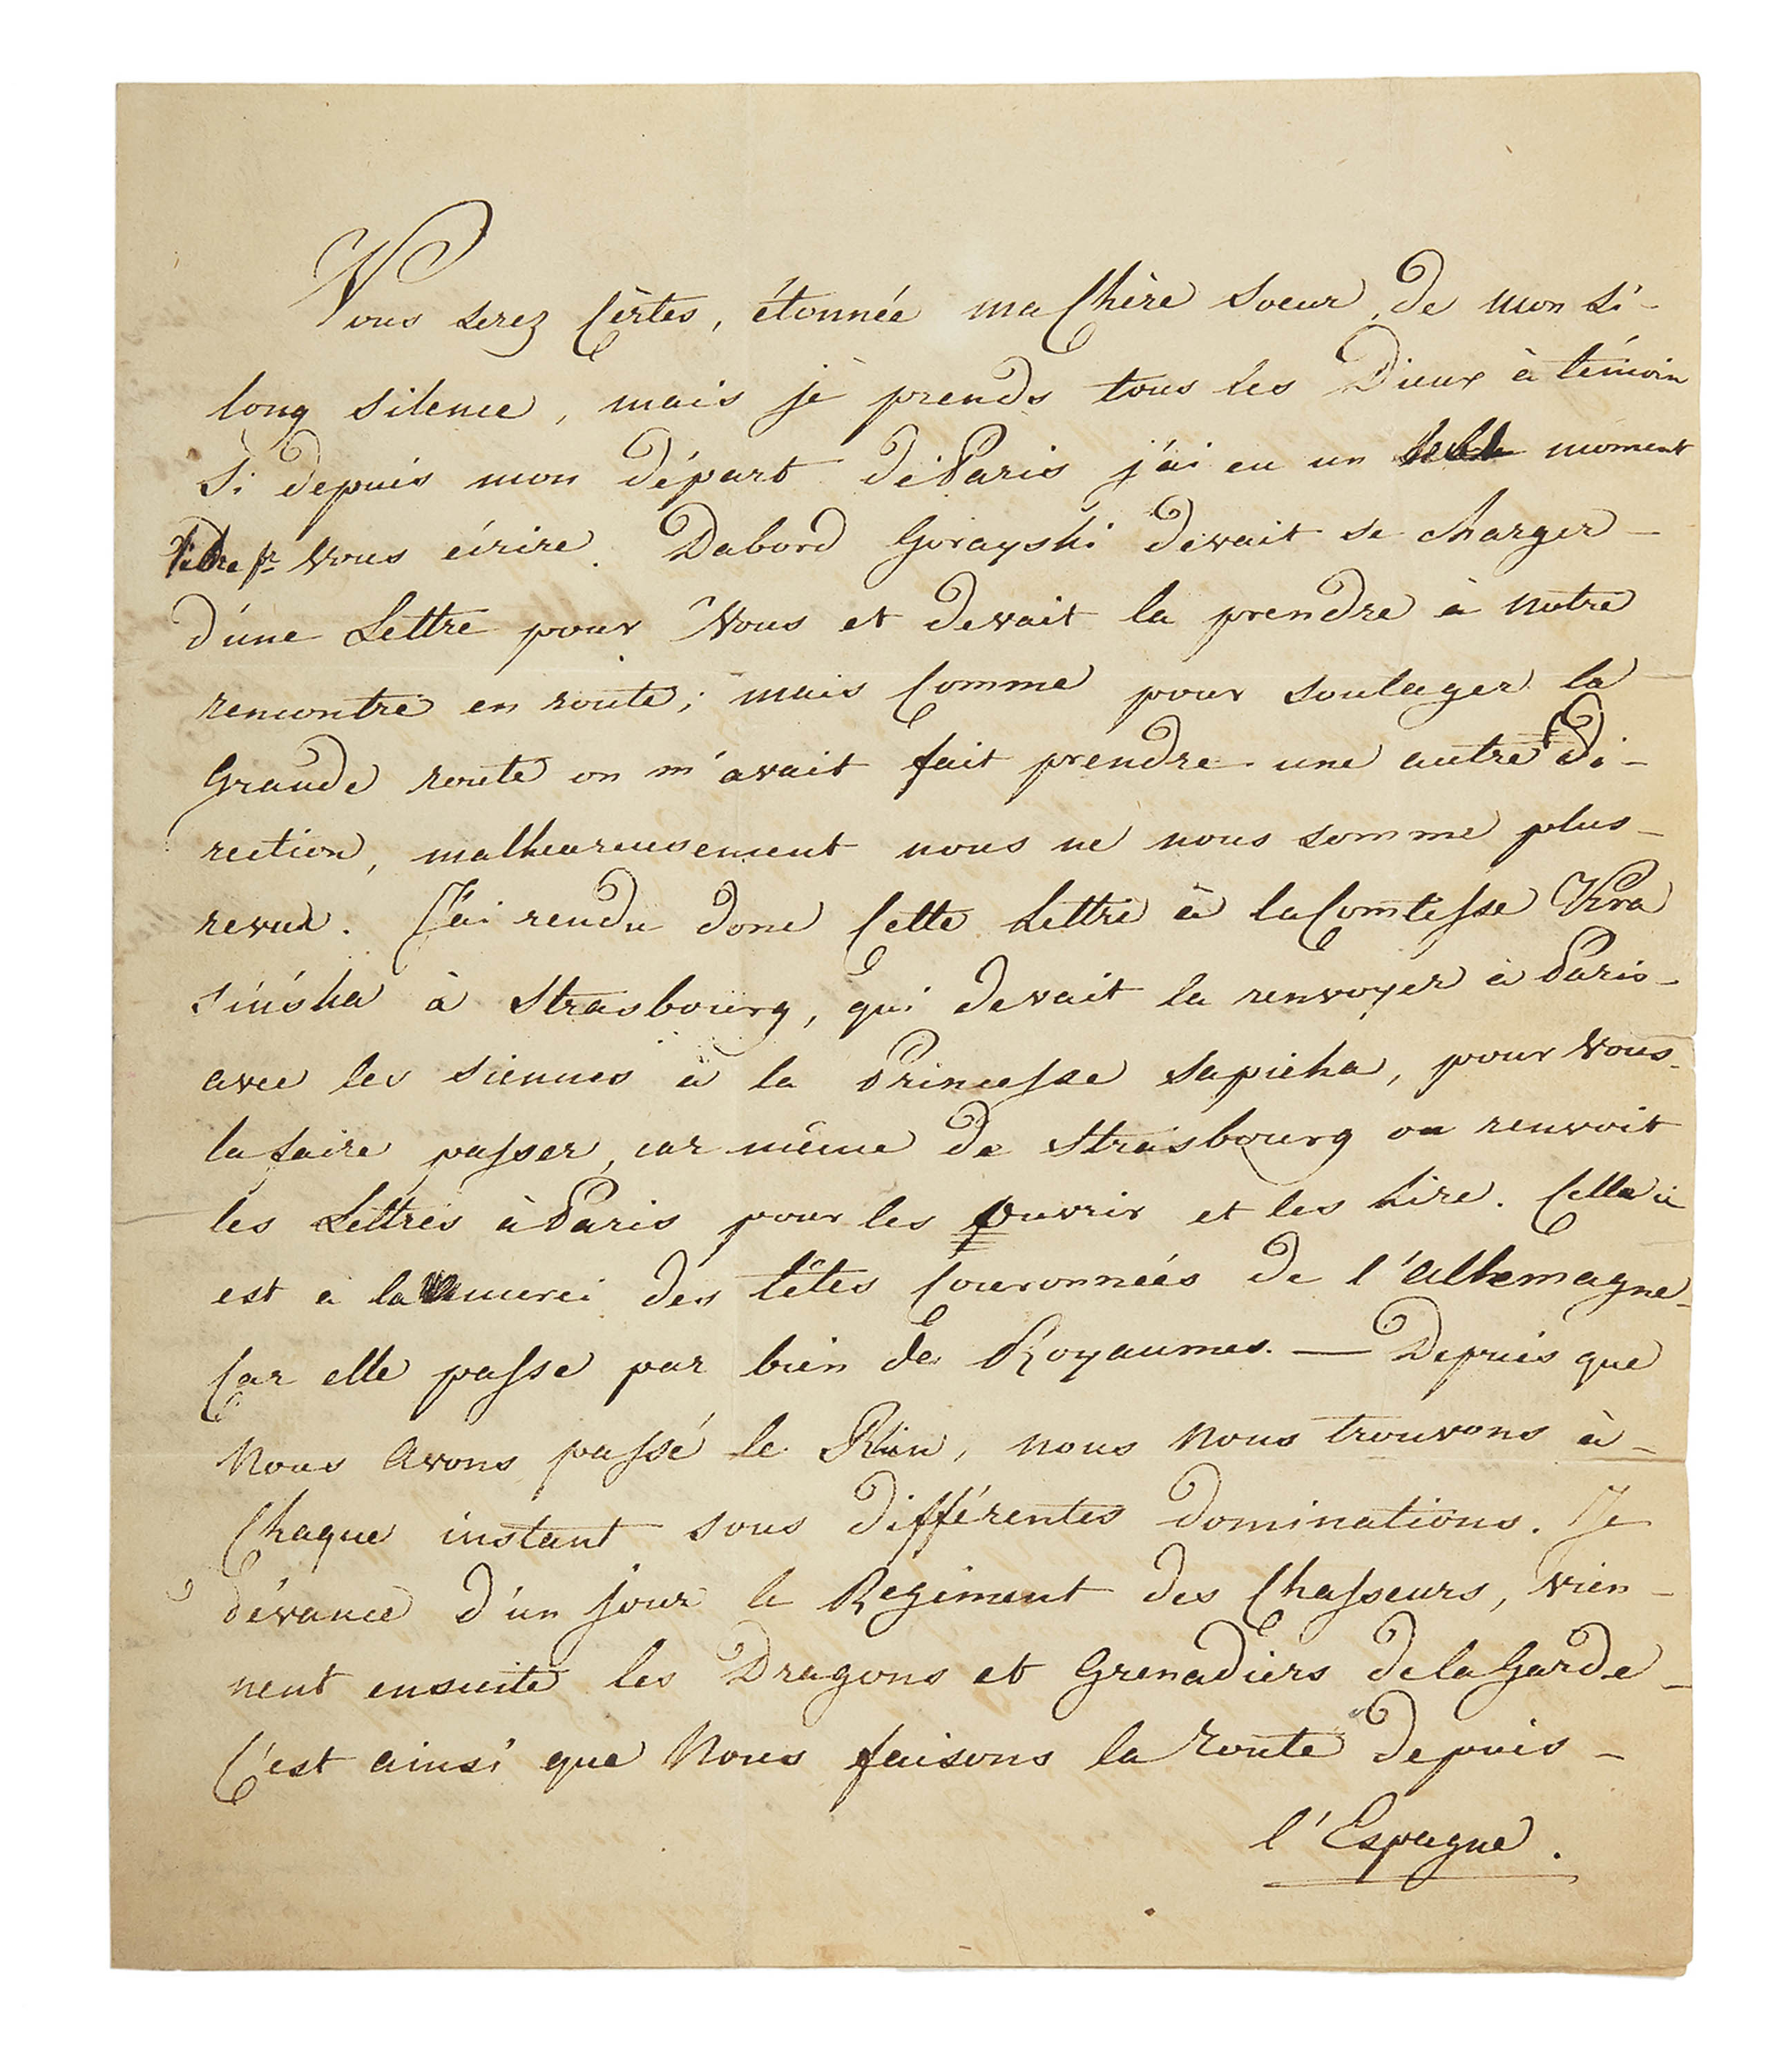 Vous serez Cèrtes, étonnée ma Chère Soeur, de mon Si-
long silence, mais je prends tous les Dieux à témoin
Si depuis mon départ de Paris j'ai eu un moment
libre pr Vous écrire. Dabord Gorayski devait se charger -
d'une Lettre pour Vous et devait la prendre à notre
rencontre en route; mais Comme pour soulager la
Grande route on m'avait fait prendre une autre di-
rection, malheureusement nous ne nous somme plus -
revus. J'ai rendu donc Cette Lettre à la Comtesse Kra
sińska à Strasbourg, qui devait la renvoyer à Paris -
avec les siennes à la Princesse Sapieha, pour Vous -
la faire passer, car même de Strasbourg on renvoit
les Lettres à Paris pour les ouvrir et les Lire. Celle ci
est a la merci des têtes Couronnées de l'Allemagne -
Car elle passe par bien des Royaumes. — Depuis que
Nous Avons passé le Rin, nous Nous trouvons à -
Chaque instant sous différentes dominations. Je
dévance d'un jour le Regiment des Chasseurs, vien -
nent ensuite les Dragons et Grenadiers de la Garde -
C'est ainsi que Nous faisons la route depuis -
l'Espagne.